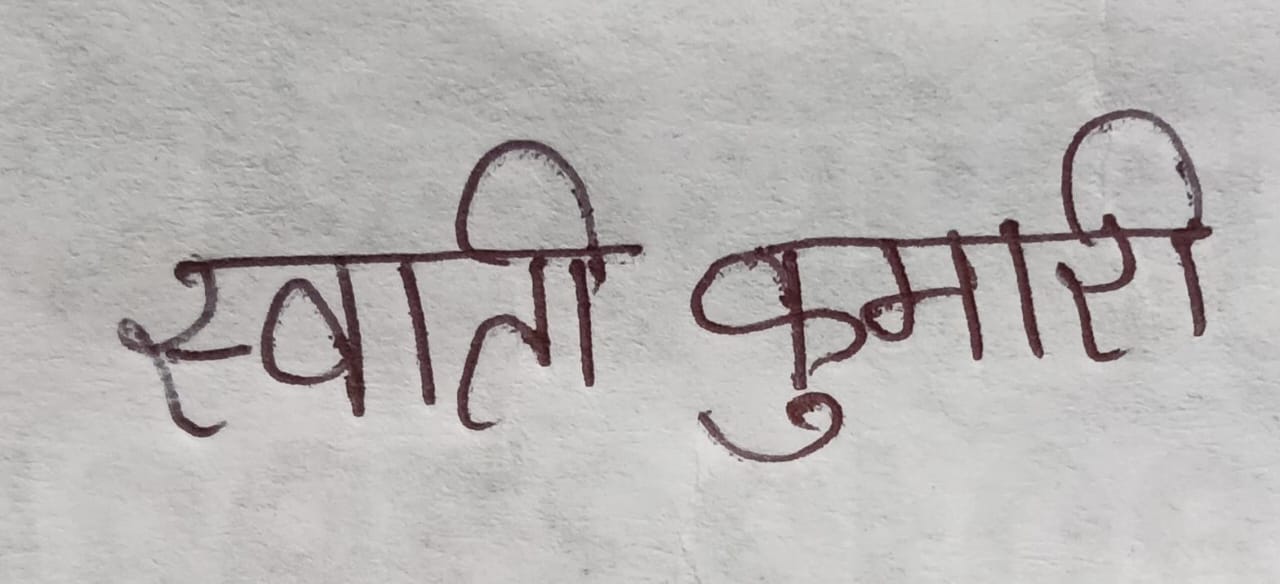 स्वाती कुमारी